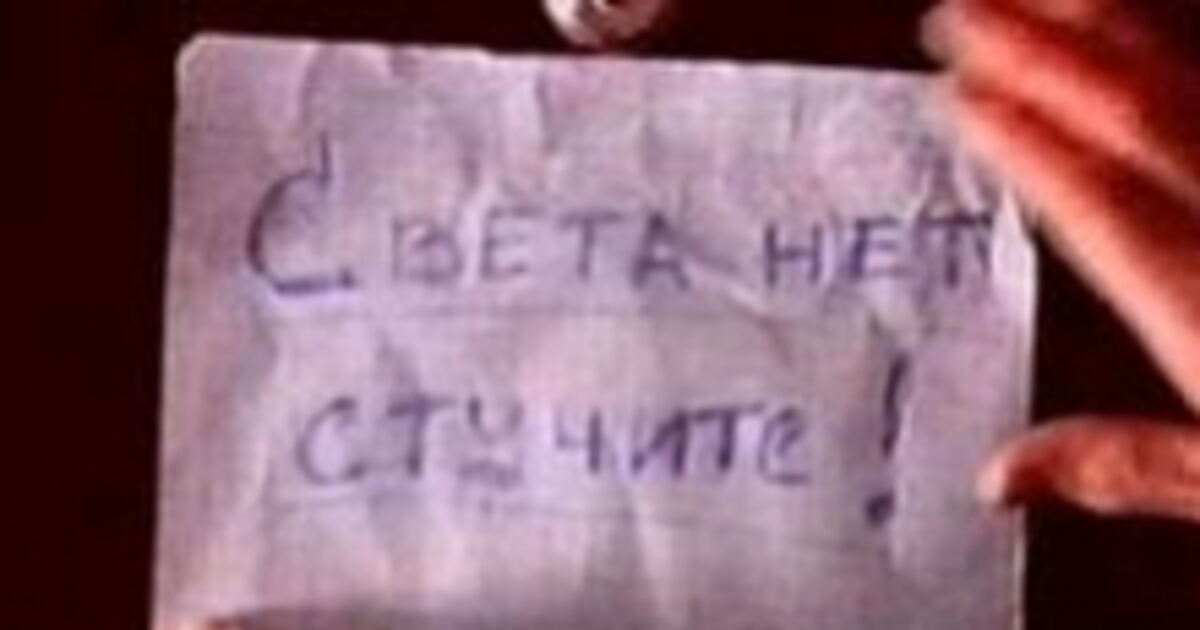 Света нет
стучите!